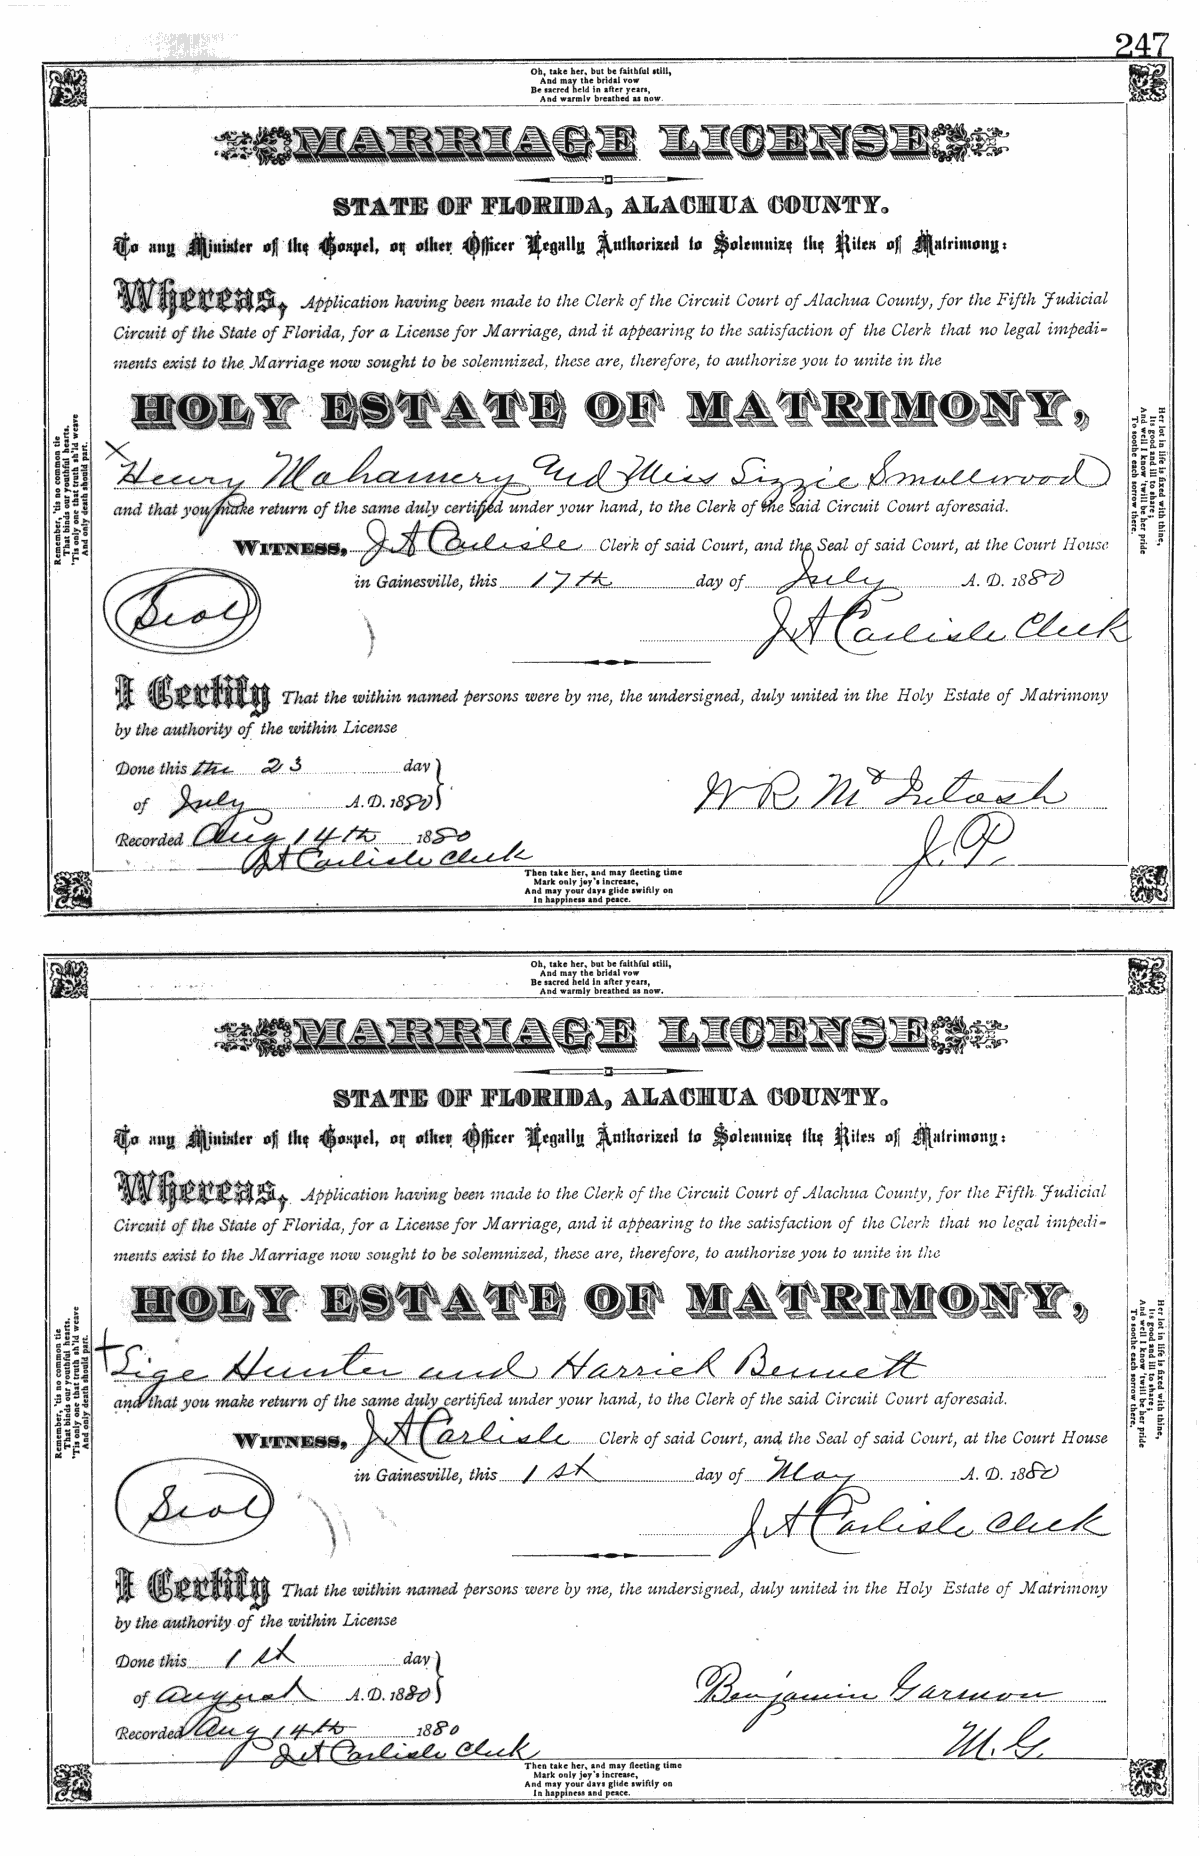 247
Oh, take her, but be faithful still,
And may the bridal vow
Be sacred held in after years,
And warmly breathed as now.
MARRIAGE LICENSE
STATE OF FLORIDA, ALACHUA COUNTY.
To any Minister of the Gospel, or other Officer Legally Authorized to Solemnize the Rites of Matrimony:
Whereas, Application having been made to the Clerk of the Circuit Court of Alachua County, for the Fifth Judicial
Circuit of the State of Florida, for a License for Marriage, and it appearing to the satisfaction of the Clerk that no legal impedi-
ments exist to the Marriage now sought to be solemnized, these are, therefore, to authorize you to unite in the
HOLY ESTATE OF MATRIMONY,
X
Henry Mahamery and Miss Lizzie Smallwood
and that you make return of the same duly certified under your hand, to the Clerk of the said Circuit Court aforesaid.
WITNESS, J A Carlisle Clerk of said Court, and the Seal of said Court, at the Court House
in Gainesville, this 17th day of July A. D. 1880
Seal
J A Carlisle Clerk
I Certify That the within named persons were by me, the undersigned, duly united in the Holy Estate of Matrimony
by the authority of the within License
Done this the 23 day
of July A. D. 1880
W R McIntosh
Recorded Aug 14th 1880
J. P.
J A Carlisle Clerk
Then take her, and may fleeting time
Mark only joy's increase,
And may your days glide swiftly on
In happiness and peace.
Remember, 'tis no common tie
That binds our youthful hearts,
'Tis only one that truth sh'ld weave
And only death should part.
Her lot in life is fixed with thine,
Its good and ill to share;
And well I know 'twill be her pride
To soothe each sorrow there.
Oh, take her, but be faithful still,
And may the bridal vow
Be sacred held in after years,
And warmly breathed as now.
MARRIAGE LICENSE
STATE OF FLORIDA, ALACHUA COUNTY.
To any Minister of the Gospel, or other Officer Legally Authorized to Solemnize the Rites of Matrimony:
Whereas, Application having been made to the Clerk of the Circuit Court of Alachua County, for the Fifth Judicial
Circuit of the State of Florida, for a License for Marriage, and it appearing to the satisfaction of the Clerk that no legal impedi-
ments exist to the Marriage now sought to be solemnized, these are, therefore, to authorize you to unite in the
HOLY ESTATE OF MATRIMONY,
+
Lige Hunter and Harriet Bennett
and that you make return of the same duly certified under your hand, to the Clerk of the said Circuit Court aforesaid.
WITNESS, J A Carlisle Clerk of said Court, and the Seal of said Court, at the Court House
in Gainesville, this 1st day of May A. D. 1880
Seal
J A Carlisle Clerk
I Certify That the within named persons were by me, the undersigned, duly united in the Holy Estate of Matrimony
by the authority of the within License
Done this 1st day
of August A. D. 1880
Benjamin Garmon
Recorded Aug 14th 1880
M. G.
J A Carlisle Clerk
Then take her, and may fleeting time
Mark only joy's increase,
And may your days glide swiftly on
In happiness and peace.
Remember, 'tis no common tie
That binds our youthful hearts,
'Tis only one that truth sh'ld weave
And only death should part.
Her lot in life is fixed with thine,
Its good and ill to share;
And well I know 'twill be her pride
To soothe each sorrow there.